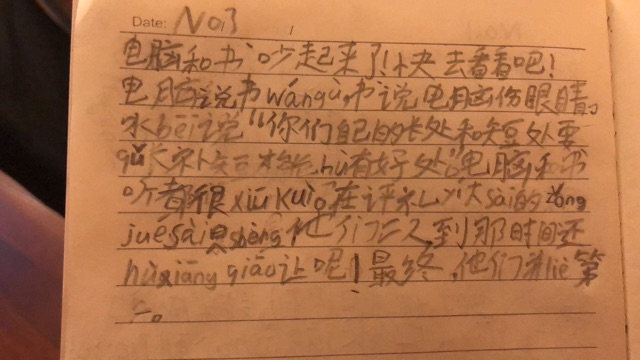 Date: No.3
电脑和书吵起来了!快去看看吧!
电脑说书wángù,书说电脑伤眼睛。
水bēi说"你们自己的长处和短处要
qǔ长 有好处"电脑和书
听都很xiū kuì。在评 sài的zǒng
jué sài shàng他们二人到那时间还
hù xiāng qiān让呢!最终,他们并liè第
一。